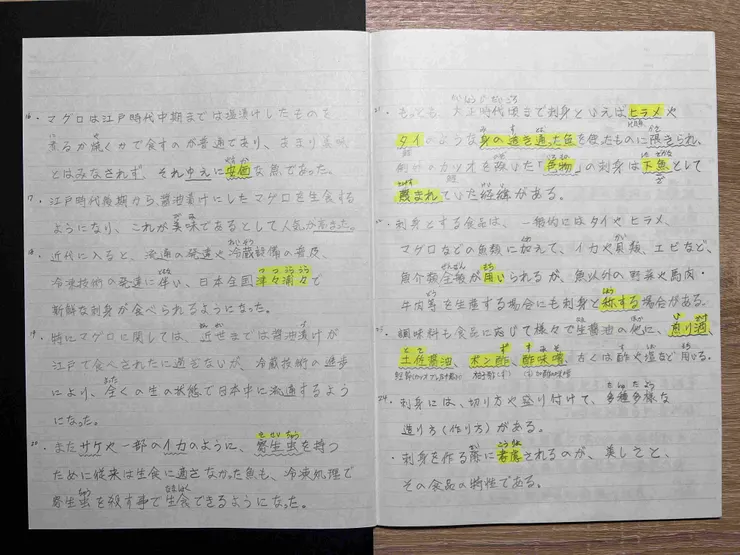 16. マグロは江戸時代中期までは塩漬けしたものを
煮るか焼くかで食すのが普通であり、あまり美味
とはみなされず、それゆえに安価な魚であった。
17. 江戸時代後期から、醤油漬けにしたマグロを生食する
ようになり、これが美味であるとして人気が高まった。
18. 近代に入ると、流通の発達や冷蔵設備の普及、
冷凍技術の発達に伴い、日本全国津々浦々で
新鮮な刺身が食べられるようになった。
19. 特にマグロに関しては、近世までは醤油漬けが
江戸で食べられたに過ぎないが、冷蔵技術の進歩
により、全くの生の状態で日本中に流通するよう
になった。
20. またサケや一部のイカのように、寄生虫を持つ
ために従来は生食に適さなかった魚も、冷凍処理で
寄生虫を殺す事で生食できるようになった。
21. もっとも、大正時代頃まで刺身といえばヒラメや
タイのような身の透き通った魚を使ったものに限られ、
のカツオを除いた「色物」の刺身は下魚として
蔑まれていた経緯がある。
刺身とする食品は、一般的にはタイやヒラメ、
マグロなどの魚類に加えて、イカや貝類、エビなど、
魚介類全般が用いられるが、魚以外の野菜や馬肉・
牛肉等を生産する場合にも刺身と称する場合がある。
調味料も食品に応じて様々で生醤油の他に、煎り酒、
土佐醤油、ポン酢、酢味噌、古くは酢や塩など用いる。
24. 刺身には、切り方や盛り付けで、多種多様な
造り方(作り方)がある。
・刺身を作る際に考慮されるのが、美しさと、
その食品の特性である。